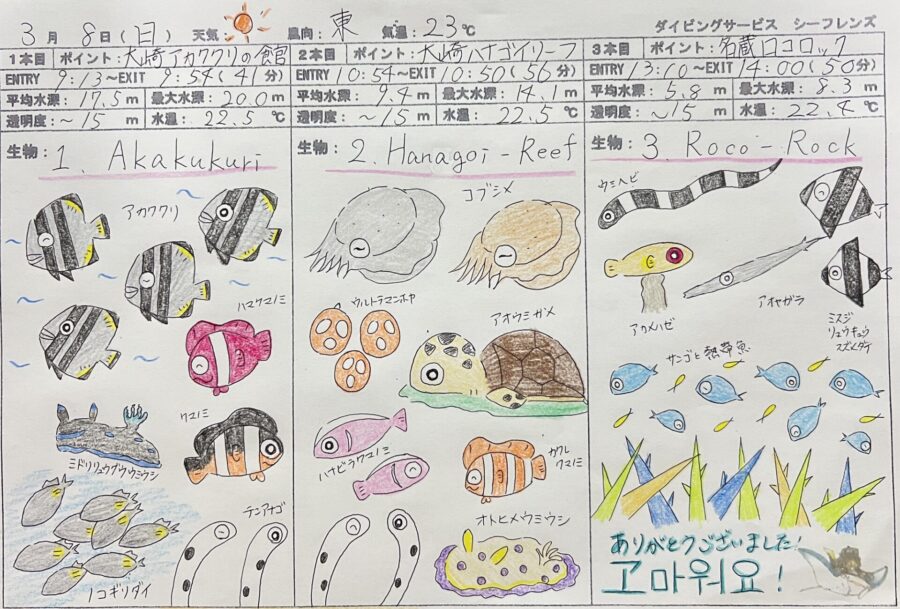 3月 8日(日) 天気: 風向: 東 気温: 23℃ ダイビングサービス シーフレンズ
1本目 ポイント: 大崎アカククリの館
ENTRY 9:13~EXIT 9:54(41分)
平均水深: 17.5m 最大水深: 20.0m
透明度: ~15m 水温: 22.5℃
生物: 1. Akakukuri
アカククリ
ハマクマノミ
クマノミ
ミドリリュウグウウミウシ
テンアナゴ
ノコギリダイ
2本目 ポイント: 大崎ハナゴイリーフ
ENTRY 10:54~EXIT 10:50(56分)
平均水深: 9.4m 最大水深: 14.1m
透明度: ~15m 水温: 22.5℃
生物: 2. Hanagoi-Reef
コブシメ
ウルトラマンホヤ
アオウミガメ
ハナビラクマノミ
カクレ
クマノミ
オトヒメウミウシ
3本目 ポイント: 名蔵ロコロック
ENTRY 13:10~EXIT 14:00(50分)
平均水深: 5.8m 最大水深: 8.3m
透明度: ~15m 水温: 22.4℃
生物: 3. Roco-Rock
ウミヘビ
アカメハゼ
アオヤガラ
ミスジ
リュウキュウ
スズメダイ
サンゴと熱帯魚
ありがとうございました!
고마워요!